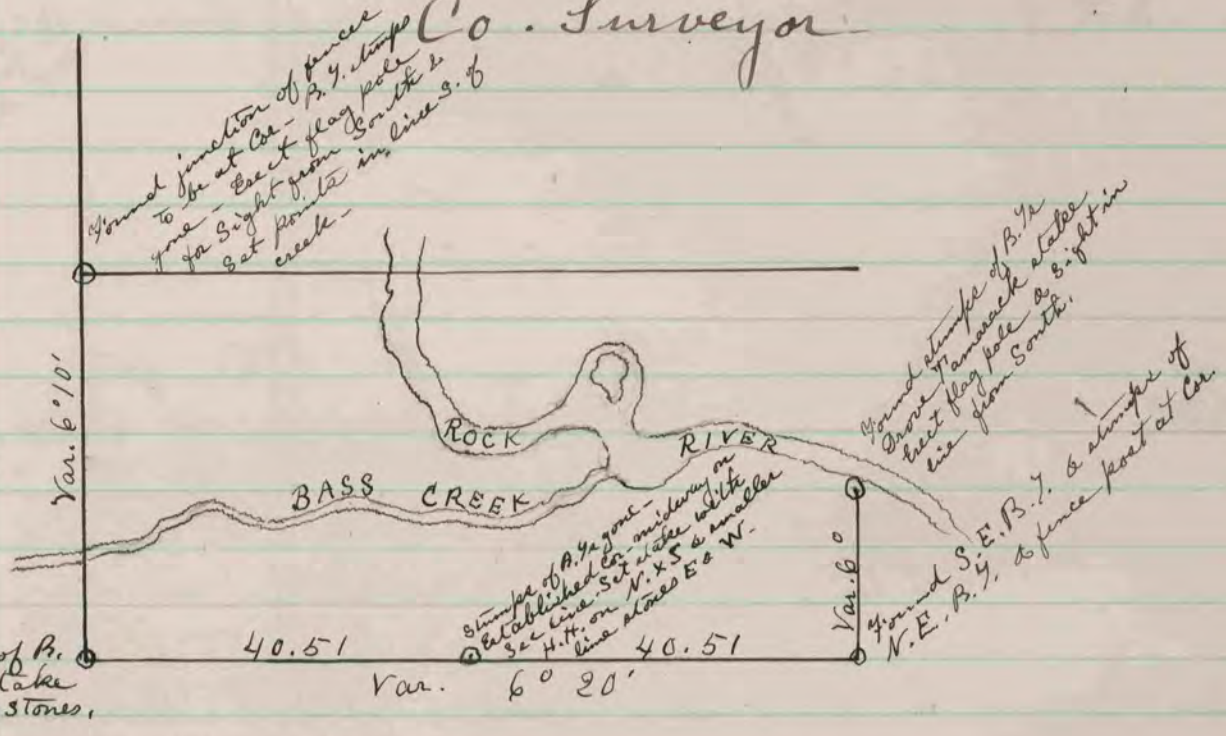 Co. Surveyor
Found junction of fences
to be at Cor - B.T. stumps
gone - Erect flag pole
for Sight from South &
Set points in line S. of
creek -
Var. 6° 10'
ROCK RIVER
BASS CREEK
Found stumps of B.Ts
Drove Tamarack stake
Erect flag pole & Sight in
line from South.
Found S.E. B.T. & stumps of
N.E. B.T. & fence post at Cor.
Var. 6°
Stumps of B.Ts gone -
Established Cor - midway on
Sec Line. Set stake with
H.H. on N. & S & smaller
line stones E & W -
40.51
40.51
Var. 6° 20'
of B.
take
stones,